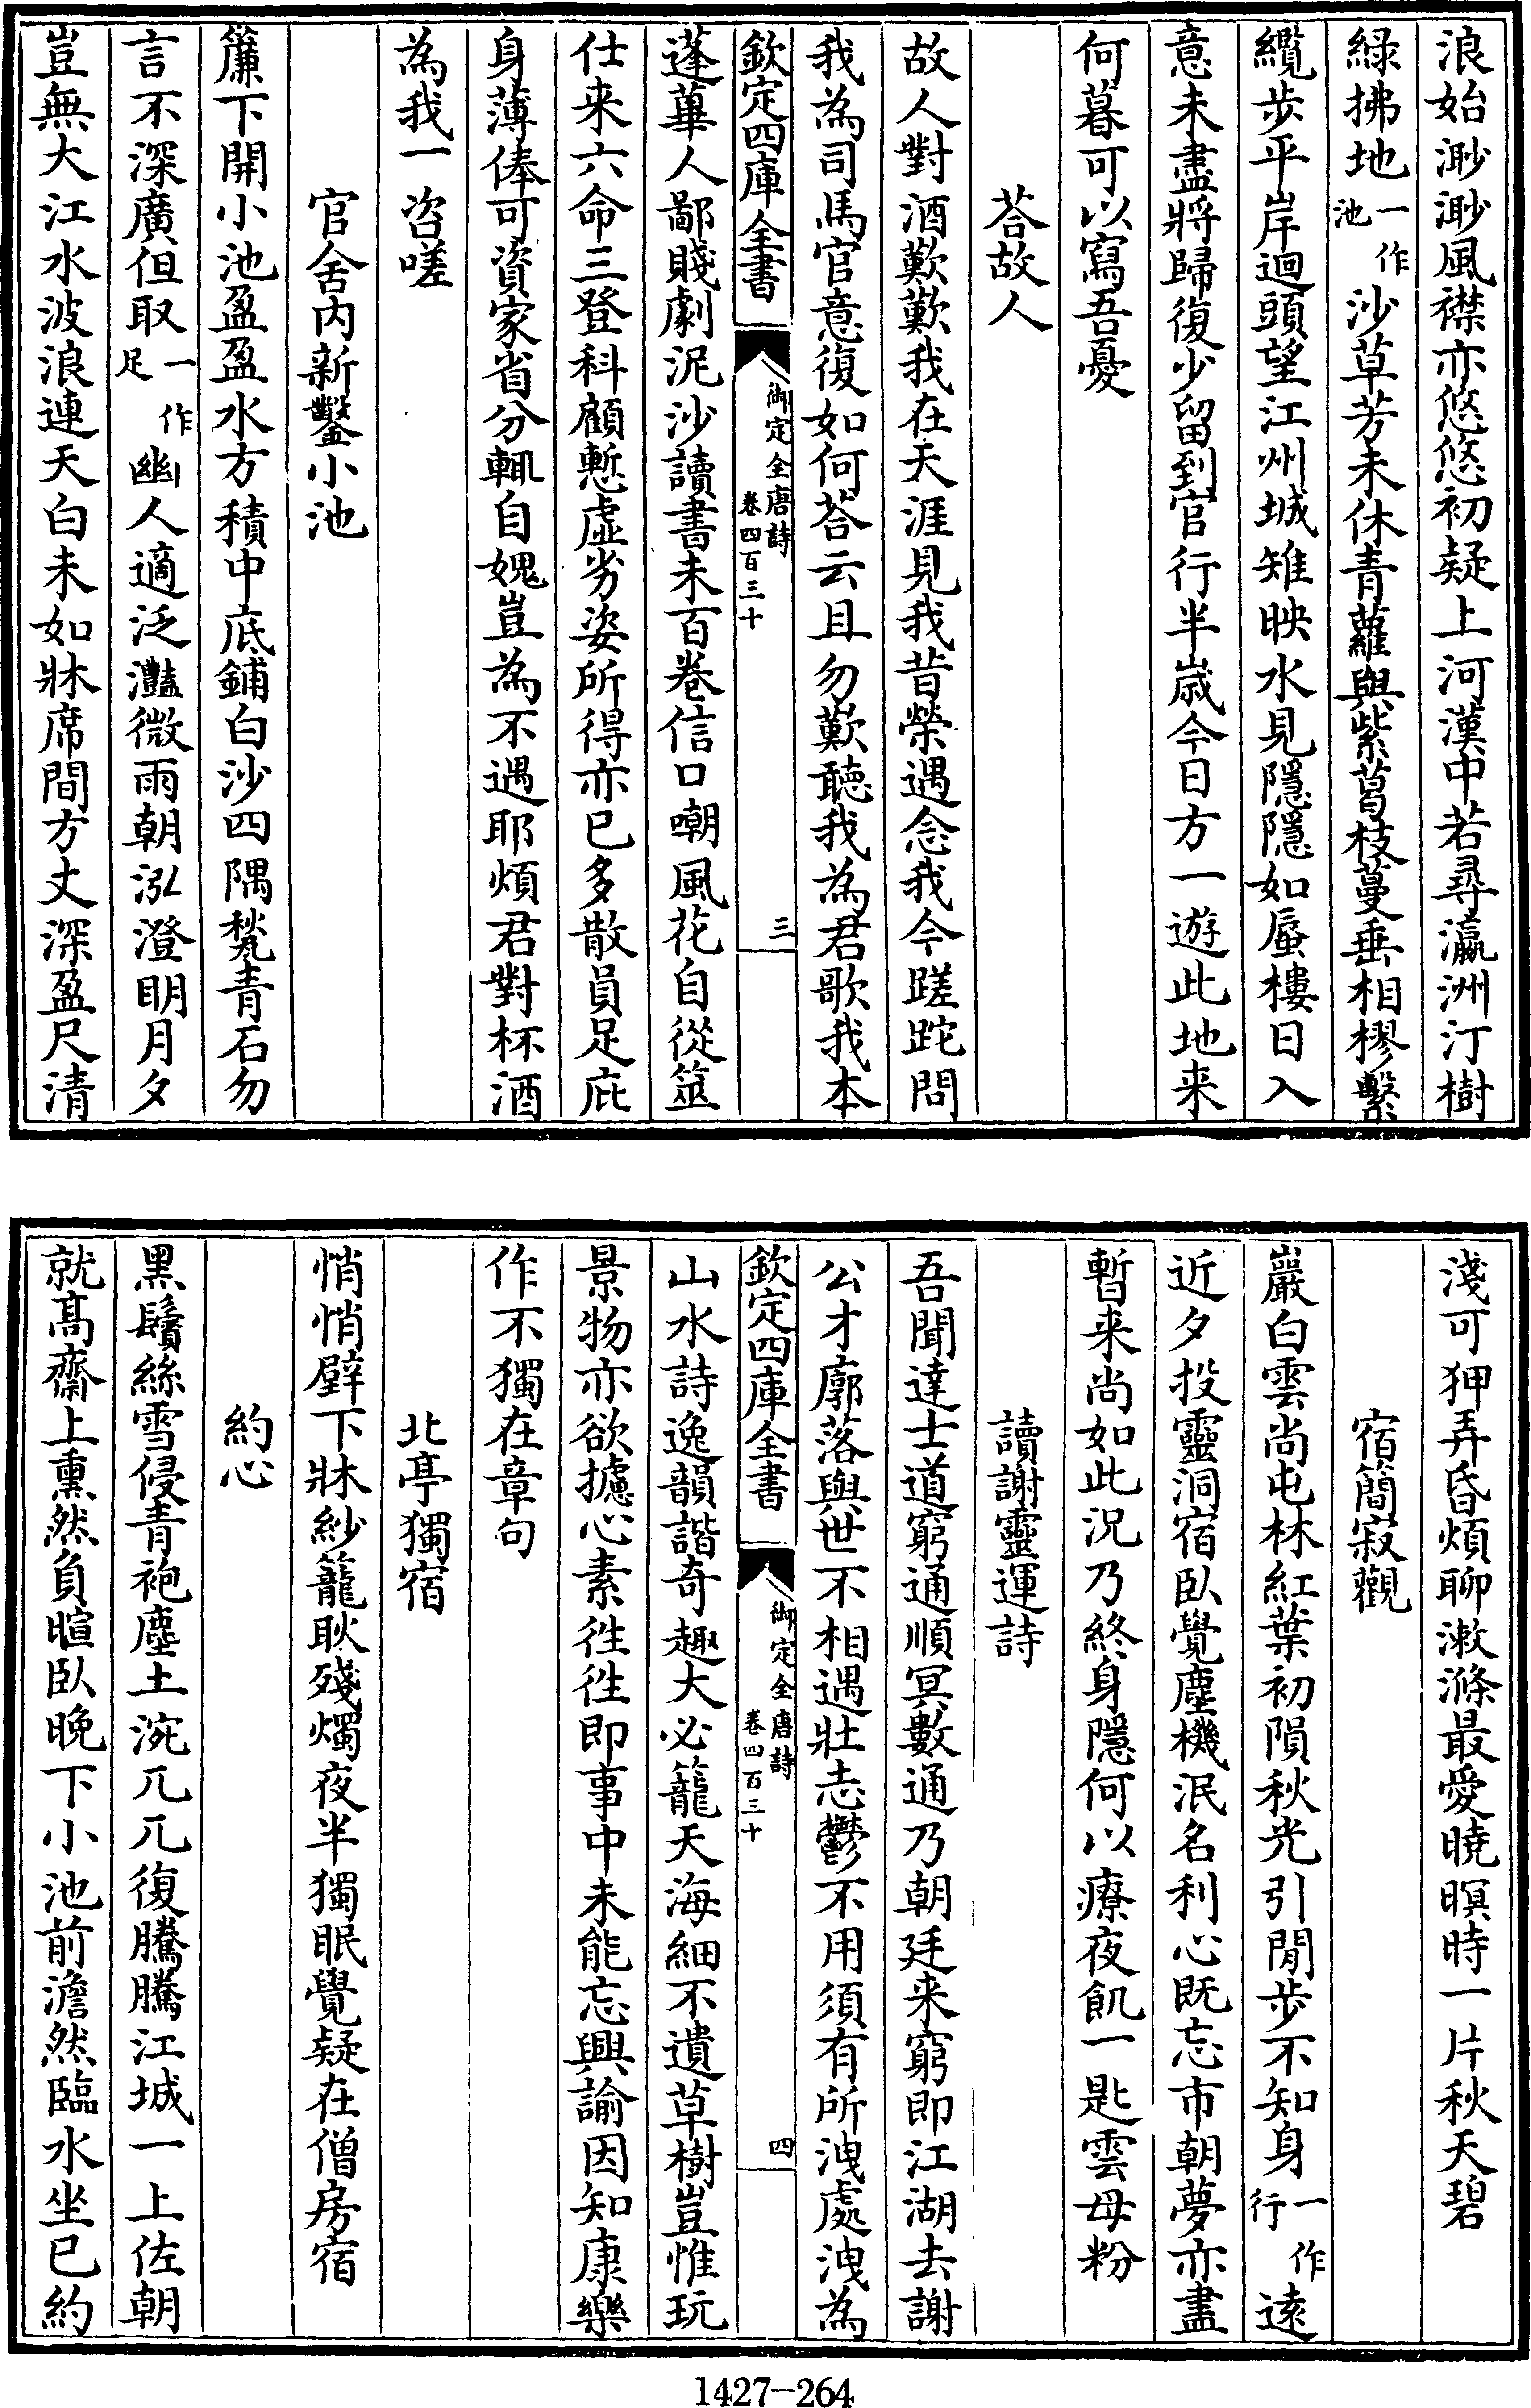 浪始渺渺風襟亦悠悠初疑上河漢中若尋瀛洲汀樹
綠拂地一作池沙草芳未休青蘿與紫葛枝蔓垂相樛繫
纜步平岸迴頭望江州城雉映水見隱隱如蜃樓日入
意未盡將歸復少留到官行半歲今日方一遊此地来
何暮可以寫吾憂
荅故人
故人對酒歎歎我在天涯見我昔榮遇念我今蹉跎問
我為司馬官意復如何荅云且勿歎聽我為君歌我本
欽定四庫全書
御定全唐詩
卷四百三十
三
蓬蓽人鄙賤劇泥沙讀書未百卷信口嘲風花自從筮
仕来六命三登科顧慙虛劣姿所得亦已多散員足庇
身薄俸可資家省分輒自媿豈為不遇耶煩君對杯酒
為我一咨嗟
官舍内新鑿小池
簾下開小池盈盈水方積中底鋪白沙四隅甃青石勿
言不深廣但取一作足幽人適泛灩微雨朝泓澄明月夕
豈無大江水波浪連天白未如牀席間方丈深盈尺清
淺可狎弄昏煩聊漱滌最愛曉暝時一片秋天碧
宿簡寂觀
巖白雲尚屯林紅葉初隕秋光引閒步不知身一作行遠
近夕投靈洞宿臥覺塵機泯名利心既忘市朝夢亦盡
暫来尚如此况乃終身隱何以療夜飢一匙雲母粉
讀謝靈運詩
吾聞達士道窮通順冥數通乃朝廷来窮即江湖去謝
公才廓落與世不相遇壯志鬱不用須有所洩處洩為
欽定四庫全書
御定全唐詩
卷四百三十
四
山水詩逸韻諧奇趣大必籠天海細不遺草樹豈惟玩
景物亦欲攄心素徃徃即事中未能忘興諭因知康樂
作不獨在章句
北亭獨宿
悄悄壁下牀紗籠耿殘燭夜半獨眠覺疑在僧房宿
約心
黑鬢絲雪侵青袍塵土涴兀兀復騰騰江城一上佐朝
就高齋上熏然負暄臥晚下小池前澹然臨水坐已約
1427-264